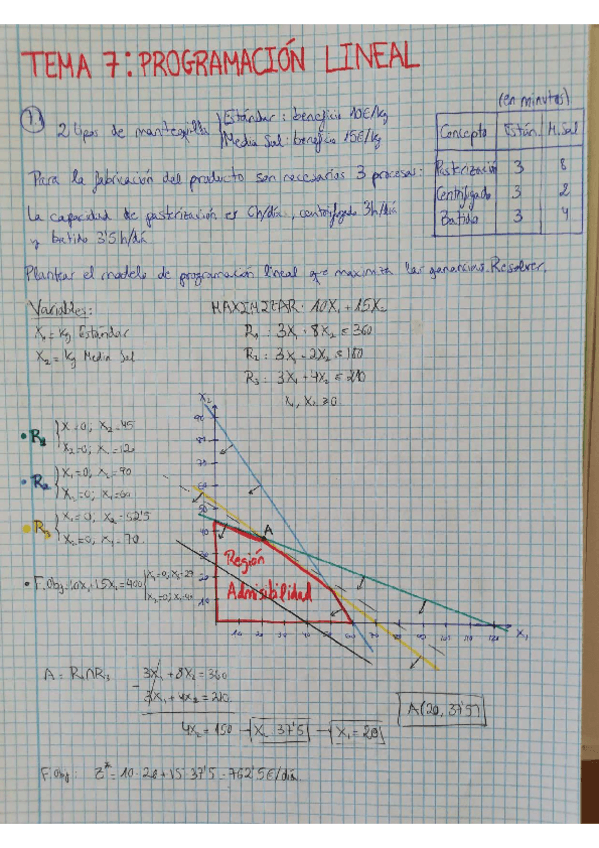 TEMA 7: PROGRAMACIÓN LINEAL
(en minutos)
1.) 2 tipos de mantequilla
Estándar: beneficio 10€/kg
Media Sal: beneficio 15€/kg
Concepto Están. M.Sal
Pasterización 3 8
Centrifugado 3 2
Batido 3 4
Para la fabricación del producto son necesarios 3 procesos:
La capacidad de pasterización es 6h/día, centrifugado 3h/día
y batido 3'5h/día
Plantear el modelo de programación lineal que maximiza las ganancias. Resolver.
Variables:
X₁ = Kg Estándar
X₂ = Kg Media Sal
MAXIMIZAR: 10X₁ + 15X₂
R₁: 3X₁ + 8X₂ ≤ 360
R₂: 3X₁ + 2X₂ ≤ 180
R₃: 3X₁ + 4X₂ ≤ 210
X₁, X₂ ≥ 0
• R₁ X₁=0; X₂=45
X₂=0; X₁=120
• R₂ X₁=0; X₂=90
X₂=0; X₁=60
• R₃ X₁=0; X₂=52'5
X₂=0; X₁=70
• F.Obj=10X₁+15X₂=400
X₂
A
Región
Admisibilidad
10 20 30 40 50 60 70
X₁
A = R₁∩R₃
3X₁ + 8X₂ = 360
- 3X₁ + 4X₂ = 210
4X₂ = 150 → X₂ = 37'5 → X₁ = 20
A(20, 37'5)
F.Obj: Z* = 10·20 + 15·37'5 = 762'5€/día.